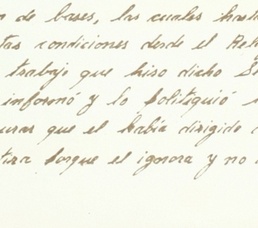 n de bases, las cuales hast
tas condiciones desde el Re
trabajo que hiso dicho S
informó y lo politiquió
urar que el había dirigido
tira porque el ignora y no